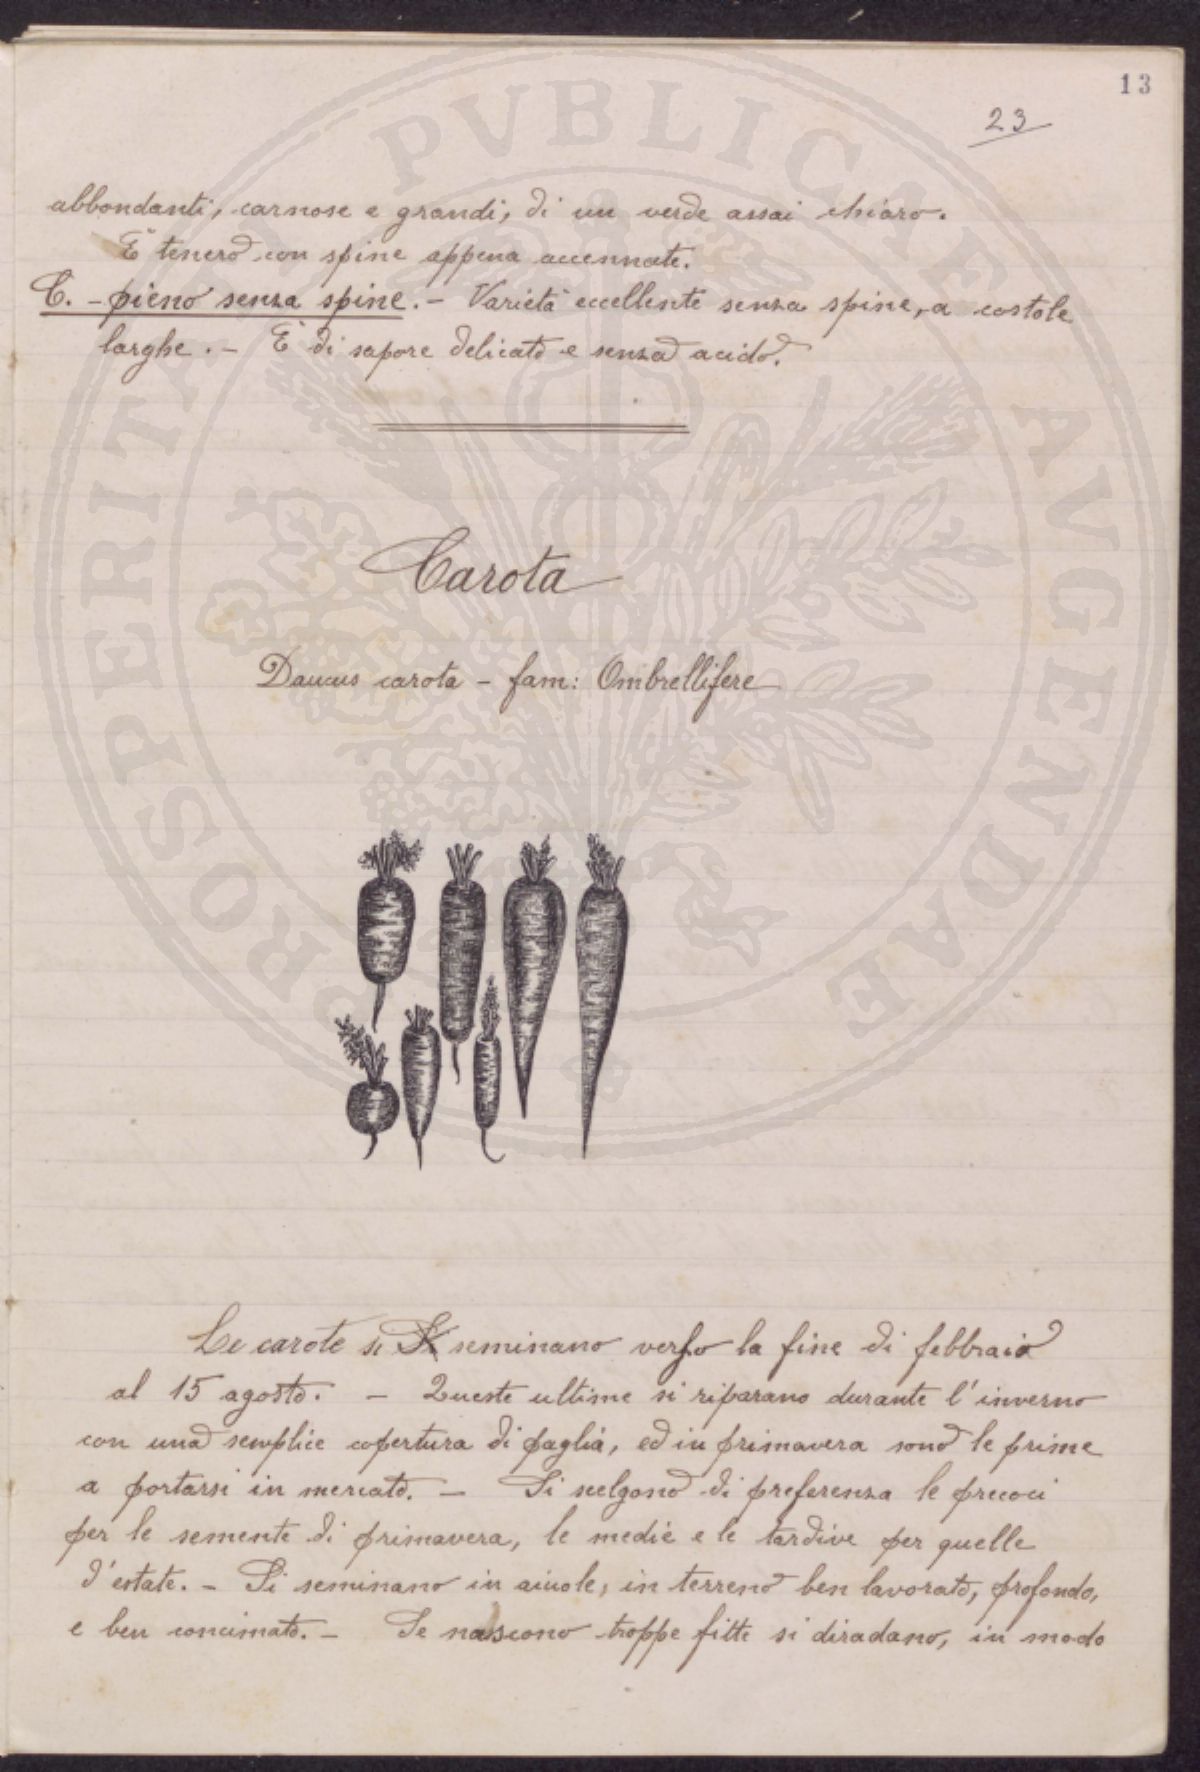 13
23
abbondanti, carnose e grandi, di un verde assai chiaro.
È tenero con spine appena accennate.
C. - pieno senza spine. - Varietà eccellente senza spine, a costole
larghe. - È di sapore delicato e senza acido.
Carota
Daucus carota - fam: Ombrellifere
Le carote si seminano verso la fine di febbraio
al 15 agosto. - Queste ultime si riparano durante l'inverno
con una semplice copertura di paglia, ed in primavera sono le prime
a portarsi in mercato. - Si scelgono di preferenza le precoci
per le semente di primavera, le medie e le tardive per quelle
d'estate. - Si seminano in aiuole, in terreno ben lavorato, profondo,
e ben concimato. - Se nascono troppe fitte si diradano, in modo
PROSPERITATI PVBLICAE AVGENDAE